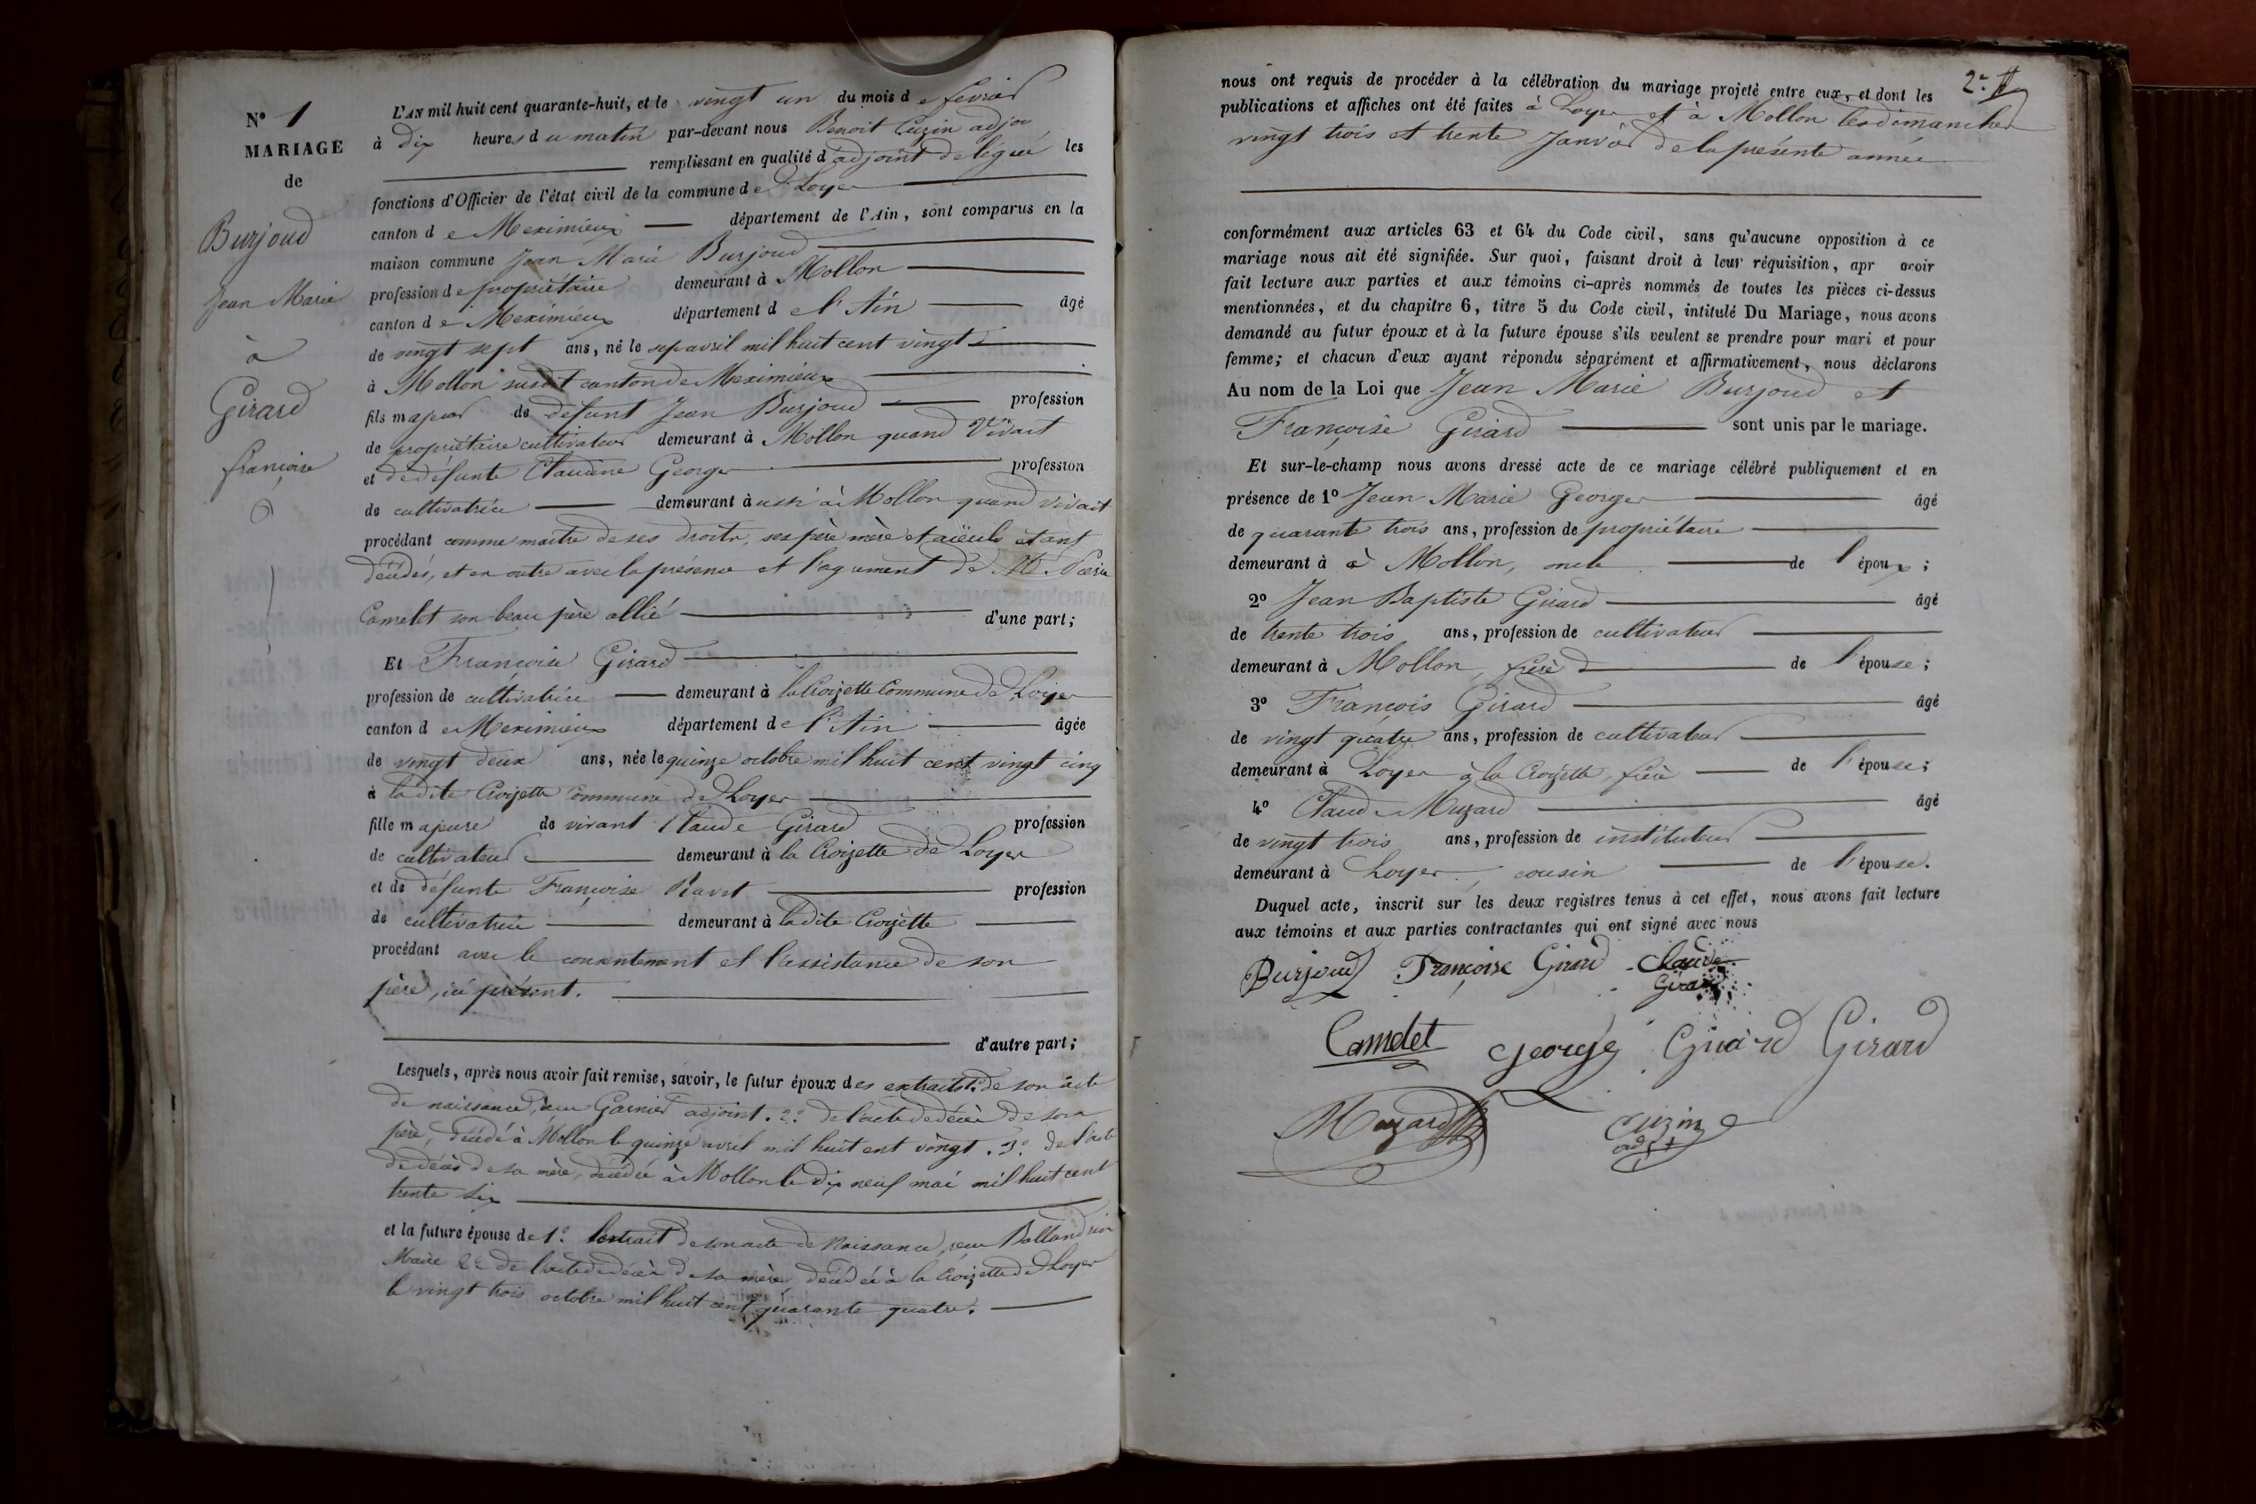 N° 1
MARIAGE
de
Burjoud
Jean Marie
à
Girard
françoise
L'AN mil huit cent quarante-huit, et le vingt un du mois de fevrier
à dix heures du matin par-devant nous Benoit Cuzin adjoi
remplissant en qualité d'adjoint delégué les
fonctions d'Officier de l'état civil de la commune de Loyes
canton de Meximieux département de l'Ain, sont comparus en la
maison commune Jean Marie Burjoud
profession de propriétaire demeurant à Mollon
canton de Meximieux département de l'Ain âgé
de vingt sept ans, né le sept avril mil huit cent vingt
à Mollon susdit canton de Meximieux
fils majeur de défunt Jean Burjoud profession
de propriétaire cultivateur demeurant à Mollon quand Vivait
et de défunte Claudine George profession
de cultivatrice demeurant aussi à Mollon quand vivait
procédant comme maître de ses droits, ses père mère et aïeuls étant
décédés, et en outre avec la présence et l'agrément de
Camelet son beau père allié d'une part;
Et Françoise Girard
profession de cultivatrice demeurant à la Croizette Commune de Loyes
canton de Meximieux département de l'Ain âgée
de vingt deux ans, née le quinze octobre mil huit cent vingt cinq
à la dite Croizette Commune de Loyes
fille majeure de vivant Claude Girard profession
de cultivateur demeurant à la Croizette de Loyes
et de défunte Françoise Ravet profession
de cultivatrice demeurant à la dite Croizette
procédant avec le consentement et l'assistance de son
père, ici présent.
d'autre part;
Lesquels, après nous avoir fait remise, savoir, le futur époux des extraits 1° de son acte
de naissance, reçu Garnier adjoint. 2° de l'acte de décès de son
père, décédé à Mollon le quinze avril mil huit cent vingt. 3° de l'acte
de décès de sa mère, décédée à Mollon le dix neuf mai mil huit cent
trente six
et la future épouse de 1° l'extrait de son acte de Naissance, reçu Ballandrin
Maire 2° de l'acte de décès de sa mère décédée à la Croizette de Loyes
le vingt trois octobre mil huit cent quarante quatre.
2e
nous ont requis de procéder à la célébration du mariage projeté entre eux, et dont les
publications et affiches ont été faites à Loyes et à Mollon les dimanches
vingt trois et trente Janvier de la présente année
conformément aux articles 63 et 64 du Code civil, sans qu'aucune opposition à ce
mariage nous ait été signifiée. Sur quoi, faisant droit à leur réquisition, apr avoir
fait lecture aux parties et aux témoins ci-après nommés de toutes les pièces ci-dessus
mentionnées, et du chapitre 6, titre 5 du Code civil, intitulé Du Mariage, nous avons
demandé au futur époux et à la future épouse s'ils veulent se prendre pour mari et pour
femme; et chacun d'eux ayant répondu séparément et affirmativement, nous déclarons
Au nom de la Loi que Jean Marie Burjoud et
Françoise Girard sont unis par le mariage.
Et sur-le-champ nous avons dressé acte de ce mariage célébré publiquement et en
présence de 1° Jean Marie George âgé
de quarante trois ans, profession de propriétaire
demeurant à à Mollon, oncle de l'époux;
2° Jean Baptiste Girard âgé
de trente trois ans, profession de cultivateur
demeurant à Mollon, frère de l'épouse;
3° François Girard âgé
de vingt quatre ans, profession de cultivateur
demeurant à Loyes à la Croizette, frère de l'épouse;
4° Claude Muzard âgé
de vingt trois ans, profession de instituteur
demeurant à Loyes, cousin de l'épouse.
Duquel acte, inscrit sur les deux registres tenus à cet effet, nous avons fait lecture
aux témoins et aux parties contractantes qui ont signé avec nous
Burjoud Françoise Girard Claude
Girard
Camelet George Girard Girard
Muzard Cuzin
adjt